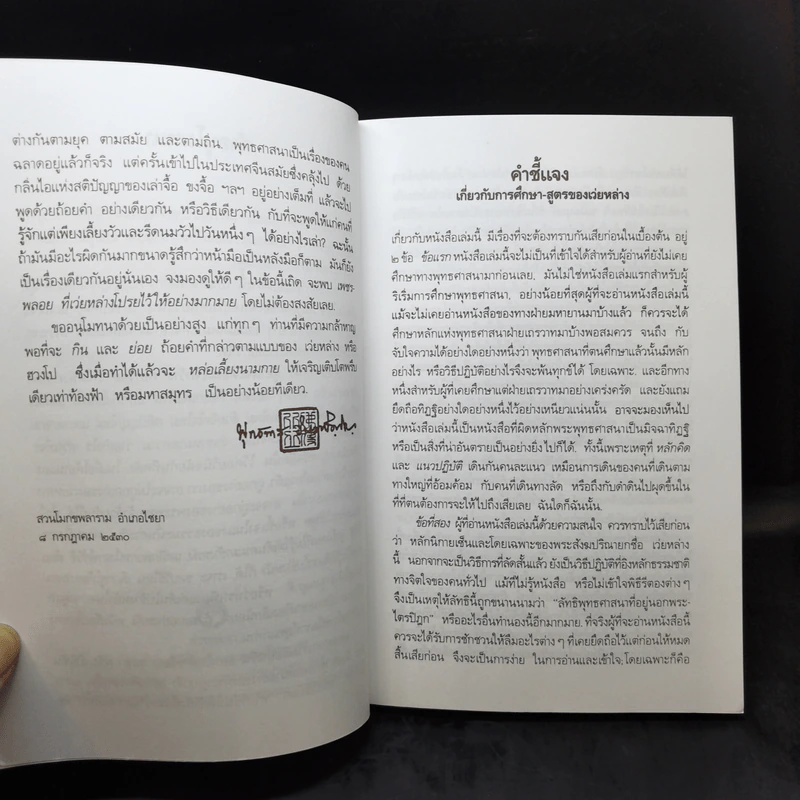 ต่างกันตามยุค ตามสมัย และตามถิ่น. พุทธศาสนาเป็นเรื่องของคน
ฉลาดอยู่แล้วก็จริง แต่ครั้นเข้าไปในประเทศจีนสมัยซึ่งคลุ้งไป ด้วย
กลิ่นไอแห่งสติปัญญาของเล่าจื๊อ ขงจื๊อ ฯลฯ อยู่อย่างเต็มที่ แล้วจะไป
พูดด้วยถ้อยคำ อย่างเดียวกัน หรือวิธีเดียวกัน กับที่จะพูดให้แก่คนที่
รู้จักแต่เพียงเลี้ยงวัวและรีดนมวัวไปวันหนึ่งๆ ได้อย่างไรเล่า? ฉะนั้น
ถ้ามันมีอะไรผิดกันมากขนาดรู้สึกว่าหน้ามือเป็นหลังมือก็ตาม มันก็ยัง
เป็นเรื่องเดียวกันอยู่นั่นเอง จงมองดูให้ดีๆ ในข้อนี้เถิด จะพบ เพชร-
พลอย ที่เว่ยหล่างโปรยไว้ให้อย่างมากมาย โดยไม่ต้องสงสัยเลย.
ขออนุโมทนาด้วยเป็นอย่างสูง แก่ทุกๆ ท่านที่มีความกล้าหาญ
พอที่จะ กิน และ ย่อย ถ้อยคำที่กล่าวตามแบบของ เว่ยหล่าง หรือ
ฮวงโป ซึ่งเมื่อทำได้แล้วจะ หล่อเลี้ยงนามกาย ให้เจริญเติบโตพรึบ
เดียวเท่าท้องฟ้า หรือมหาสมุทร เป็นอย่างน้อยทีเดียว.
สวนโมกขพลาราม อำเภอไชยา
๘ กรกฎาคม ๒๕๓๐
คำชี้แจง
เกี่ยวกับการศึกษา-สูตรของเว่ยหล่าง
เกี่ยวกับหนังสือเล่มนี้ มีเรื่องที่จะต้องทราบกันเสียก่อนในเบื้องต้น อยู่
๒ ข้อ ข้อแรก หนังสือเล่มนี้จะไม่เป็นที่เข้าใจได้สำหรับผู้อ่านที่ยังไม่เคย
ศึกษาทางพุทธศาสนามาก่อนเลย. มันไม่ใช่หนังสือเล่มแรกสำหรับผู้
ริเริ่มการศึกษาพุทธศาสนา, อย่างน้อยที่สุดผู้ที่จะอ่านหนังสือเล่มนี้
แม้จะไม่เคยอ่านหนังสือของทางฝ่ายมหายานมาบ้างแล้ว ก็ควรจะได้
ศึกษาหลักแห่งพุทธศาสนาฝ่ายเถรวาทมาบ้างพอสมควร จนถึง กับ
จับใจความได้อย่างใดอย่างหนึ่งว่า พุทธศาสนาที่ตนศึกษาแล้วนั้นมีหลัก
อย่างไร หรือวิธีปฏิบัติอย่างไรจึงจะพ้นทุกข์ได้ โดยเฉพาะ. และอีกทาง
หนึ่งสำหรับผู้ที่เคยศึกษาแต่ฝ่ายเถรวาทมาอย่างเคร่งครัด และยังแถม
ยึดถือทิฏฐิอย่างใดอย่างหนึ่งไว้อย่างเหนียวแน่นนั้น อาจจะมองเห็นไป
ว่าหนังสือเล่มนี้เป็นหนังสือที่ผิดหลักพระพุทธศาสนาเป็นมิจฉาทิฏฐิ
หรือเป็นสิ่งที่น่าอันตรายเป็นอย่างยิ่ง ไปก็ได้. ทั้งนี้เพราะเหตุที่ หลักคิด
และ แนวปฏิบัติ เดินกันคนละแนว เหมือนการเดินของคนที่เดินตาม
ทางใหญ่ที่อ้อมค้อม กับคนที่เดินทางลัด หรือถึงกับดำดินไปผุดขึ้นใน
ที่ที่ตนต้องการจะให้ไปถึงเสียเลย ฉันใดก็ฉันนั้น.
ข้อที่สอง ผู้ที่อ่านหนังสือเล่มนี้ด้วยความสนใจ ควรทราบไว้เสียก่อน
ว่า หลักนิกายเซ็นและโดยเฉพาะของพระสังฆปริณายกชื่อ เว่ยหล่าง
นี้ นอกจากจะเป็นวิธีการที่ลัดสั้นแล้ว ยังเป็นวิธีปฏิบัติที่อิงหลักธรรมชาติ
ทางจิตใจของคนทั่วไป แม้ที่ไม่รู้หนังสือ หรือไม่เข้าใจพิธีรีตองต่างๆ
จึงเป็นเหตุให้ลัทธินี้ถูกขนานนามว่า "ลัทธิพุทธศาสนาที่อยู่นอกพระ-
ไตรปิฎก" หรืออะไรอื่นทำนองนี้อีกมากมาย. ที่จริงผู้ที่จะอ่านหนังสือนี้
ควรจะได้รับการชักชวนให้ลืมอะไรต่างๆ ที่เคยยึดถือไว้แต่ก่อนให้หมด
สิ้นเสียก่อน จึงจะเป็นการง่าย ในการอ่านและเข้าใจ; โดยเฉพาะก็คือ